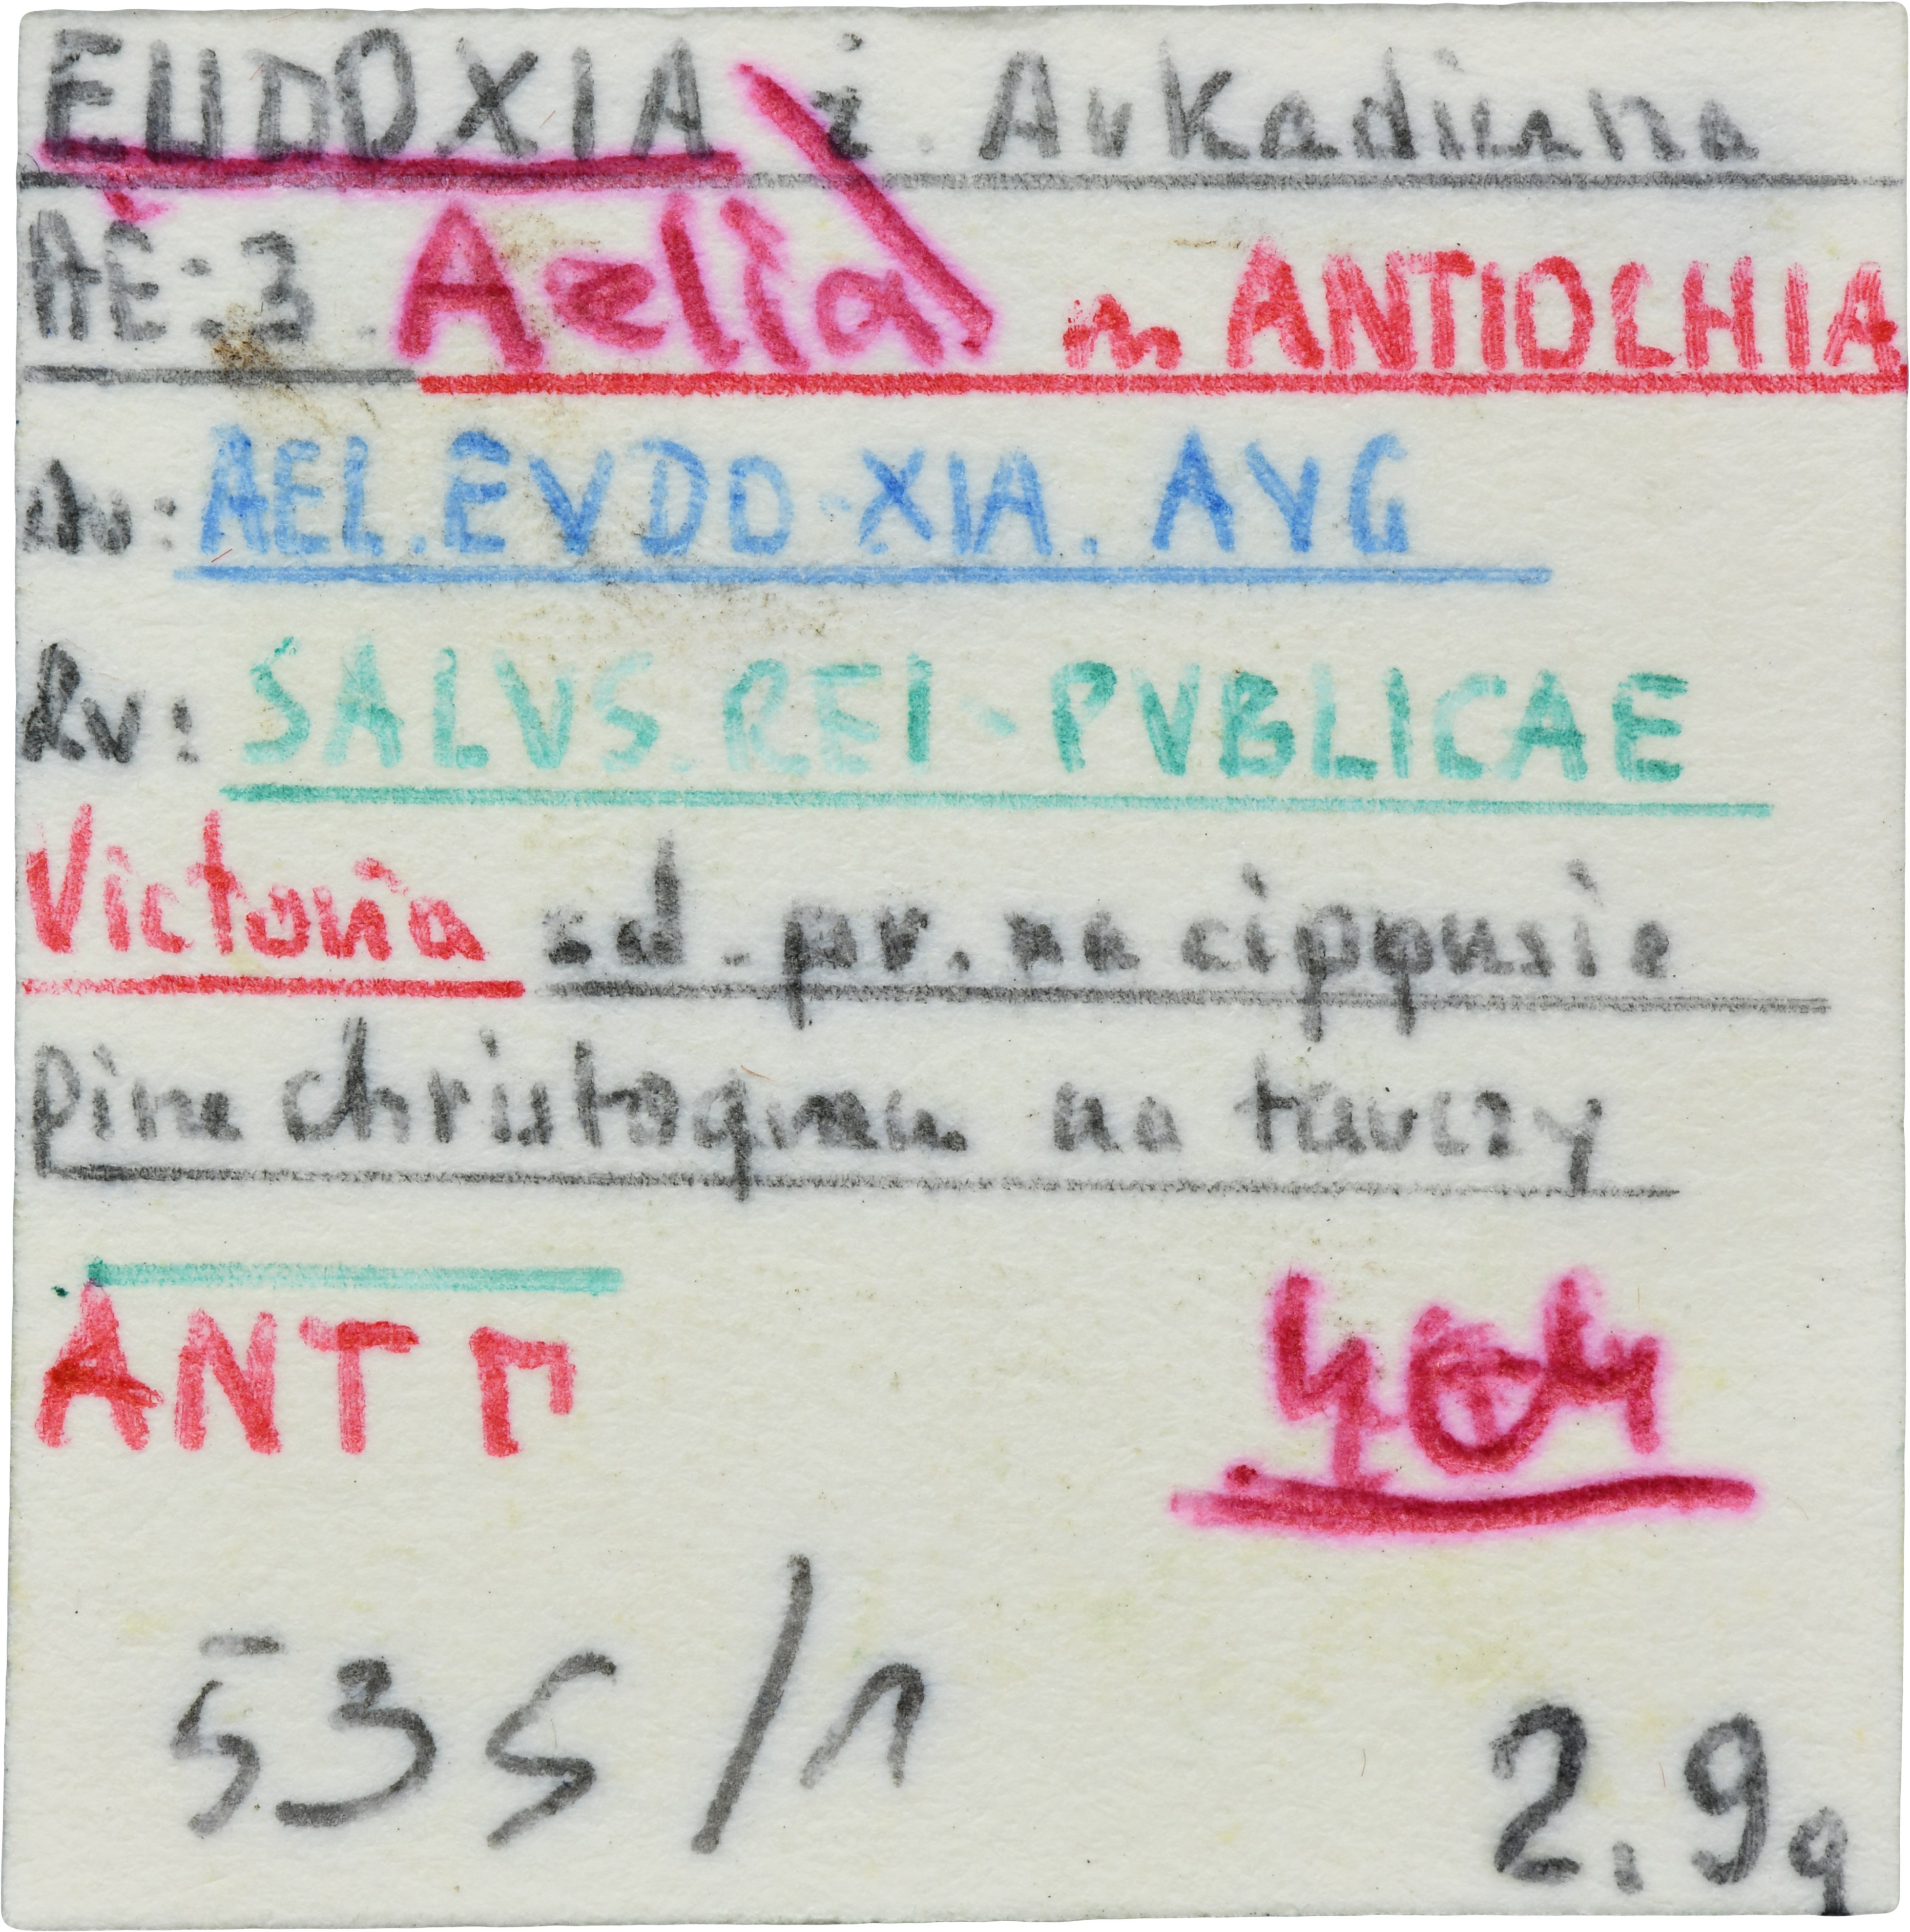 EUDOXIA ż. Arkadiusza
AE:3. Aelia m ANTIOCHIA
Av: AEL.EVDO-XIA.AVG
Rv: SALVS.REI-PVBLICAE
Victoria sd.pr.na cippusie
pisze christogram na tarczy
ANTΓ
404
535/1
2,9g